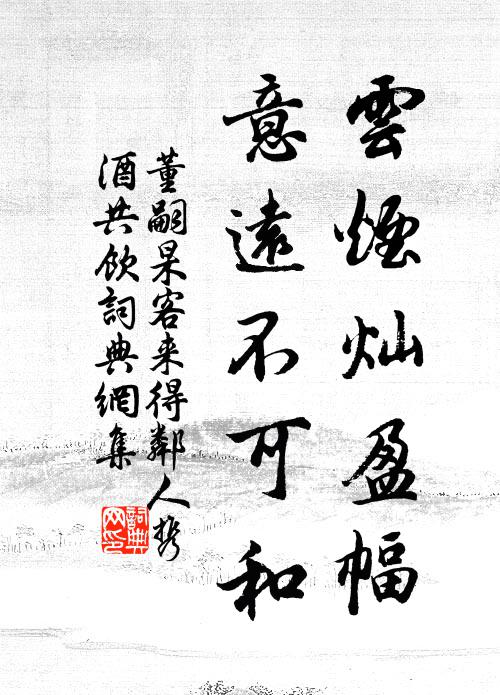 雲煙灿盈幅
意遠不可和
董嗣杲客来得鄰人携
酒共飲詞典網集
詞典网印